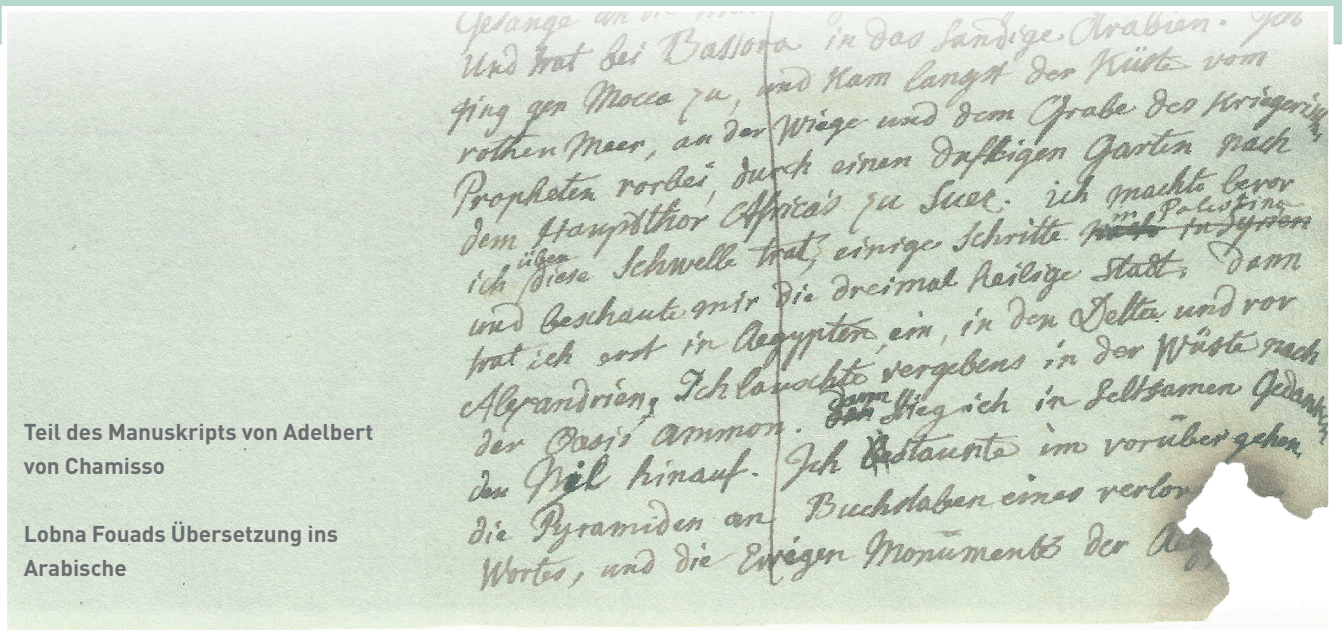 Gesange an die
Und trat bei Bassora in das Sandige Arabien. Ich
ging gen Mocca zu, und kam langst der Küste vom
rothen Meer, an der Wiege und dem Grabe des
Propheten vorbei, durch einen duftigen Garten nach
dem Hauptthor Africa's zu Suez. ich machte bevor
in Palestina
ich über diese Schwelle trat, einige Schritte nach in Syrien
und beschaute mir die dreimal heilige Stadt, dann
trat ich erst in Aegypten ein, in den Delta und vor
Alexandrien, Ich lauschte vergebens in der Wüste nach
der Oasis Ammon. dann stieg ich in seltsamen
den Nil hinauf. Ich bestaunte im vorübergehen,
die Pyramiden an Buchstaben eines verlor
Wortes, und die Ewigen Monumente der
Teil des Manuskripts von Adelbert
von Chamisso
Lobna Fouads Übersetzung ins
Arabische